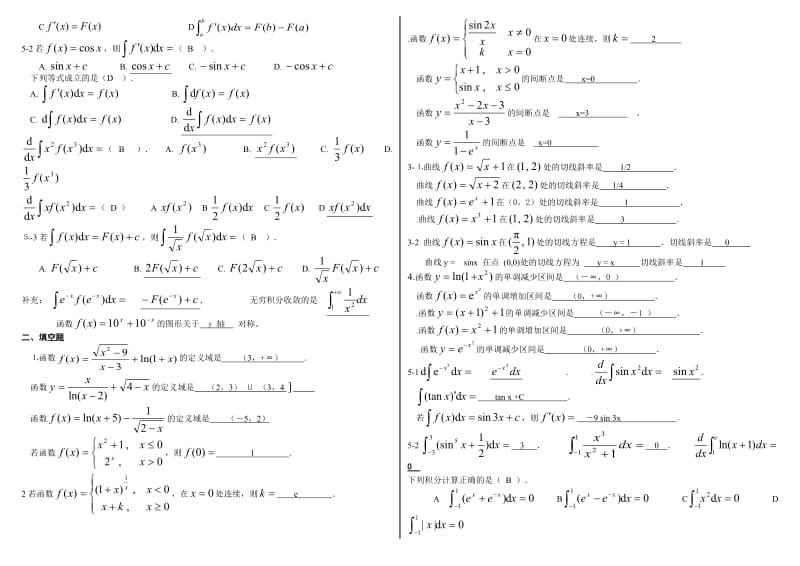 C f′(x) = F(x)    D ∫_a^b f′(x)dx = F(b) − F(a)
5-2 若 f(x) = cos x，则 ∫f′(x)dx =（ B ）．
A. sin x + c    B. cos x + c    C. −sin x + c    D. −cos x + c
下列等式成立的是（D ）．
A. ∫f′(x)dx = f(x)    B. ∫df(x) = f(x)
C. d∫f(x)dx = f(x)    D. d/dx ∫f(x)dx = f(x)
d/dx ∫x²f(x³)dx =（ B ）．    A. f(x³)    B. x²f(x³)    C. 1/3 f(x)    D.
1/3 f(x³)
d/dx ∫xf(x²)dx =（ D ）    A xf(x²)    B 1/2 f(x)dx    C 1/2 f(x)    D xf(x²)dx
5-3 若 ∫f(x)dx = F(x) + c，则 ∫1/√x f(√x)dx =（ B ）．
A. F(√x) + c    B. 2F(√x) + c    C. F(2√x) + c    D. 1/√x F(√x) + c
补充： ∫e^{−x}f(e^{−x})dx = −F(e^{−x}) + c ,    无穷积分收敛的是 ∫_1^{+∞} 1/x² dx
函数 f(x) = 10^x + 10^{−x} 的图形关于 y 轴 对称．
二、填空题
1.函数 f(x) = √(x² − 9)/(x − 3) + ln(1 − x) 的定义域是 （3, +∞）．
函数 y = x/ln(x − 2) + √(4 − x) 的定义域是 （2，3） U （3，4 ]
函数 f(x) = ln(x + 5) − 1/√(2 − x) 的定义域是 （－5，2）
若函数 f(x) = { x² + 1, x ≤ 0 ; 2^x , x > 0 ，则 f(0) = 1 ．
2 若函数 f(x) = { (1 + x)^{1/x} , x < 0 ; x + k, x ≥ 0 ，在 x = 0 处连续，则 k = e ．
.函数 f(x) = { sin 2x / x , x ≠ 0 ; k , x = 0 在 x = 0 处连续，则 k = 2
函数 y = { x + 1, x > 0 ; sin x, x ≤ 0 的间断点是 x=0 ．
函数 y = (x² − 2x − 3)/(x − 3) 的间断点是 x=3 ．
函数 y = 1/(1 − e^x) 的间断点是 x=0
3- 1.曲线 f(x) = √x + 1 在 (1, 2) 处的切线斜率是 1/2 ．
曲线 f(x) = √(x + 2) 在 (2, 2) 处的切线斜率是 1/4 ．
曲线 f(x) = e^x + 1 在（0，2）处的切线斜率是 1 ．
.曲线 f(x) = x³ + 1 在 (1, 2) 处的切线斜率是 3 ．
3-2 曲线 f(x) = sin x 在 (π/2, 1) 处的切线方程是 y = 1 ．切线斜率是 0
曲线 y = sinx 在点 (0,0)处的切线方程为 y = x 切线斜率是 1
4.函数 y = ln(1 + x²) 的单调减少区间是 （－∞，0 ）．
函数 f(x) = e^{x²} 的单调增加区间是 （0，+∞）．
.函数 y = (x + 1)² + 1 的单调减少区间是 （－∞，－1 ）．
.函数 f(x) = x² + 1 的单调增加区间是 （0，+∞）．
函数 y = e^{−x²} 的单调减少区间是 （0，+∞）．
5-1 d∫e^{−x²}dx = e^{−x²}dx ． . d/dx ∫sin x²dx = sin x² ．
∫(tan x)′dx = tan x +C ．
若 ∫f(x)dx = sin 3x + c，则 f′(x) = －9 sin 3x ．
5-2 ∫_{−3}^3 (sin⁵ x + 1/2)dx = 3 ． ∫_{−1}^1 x³/(x² + 1) dx = 0 ． d/dx ∫_1^e ln(x + 1)dx =
0
下列积分计算正确的是（ B ）．
A ∫_{−1}^1 (e^x + e^{−x})dx = 0    B ∫_{−1}^1 (e^x − e^{−x})dx = 0    C ∫_{−1}^1 x²dx = 0    D
∫_{−1}^1 | x |dx = 0